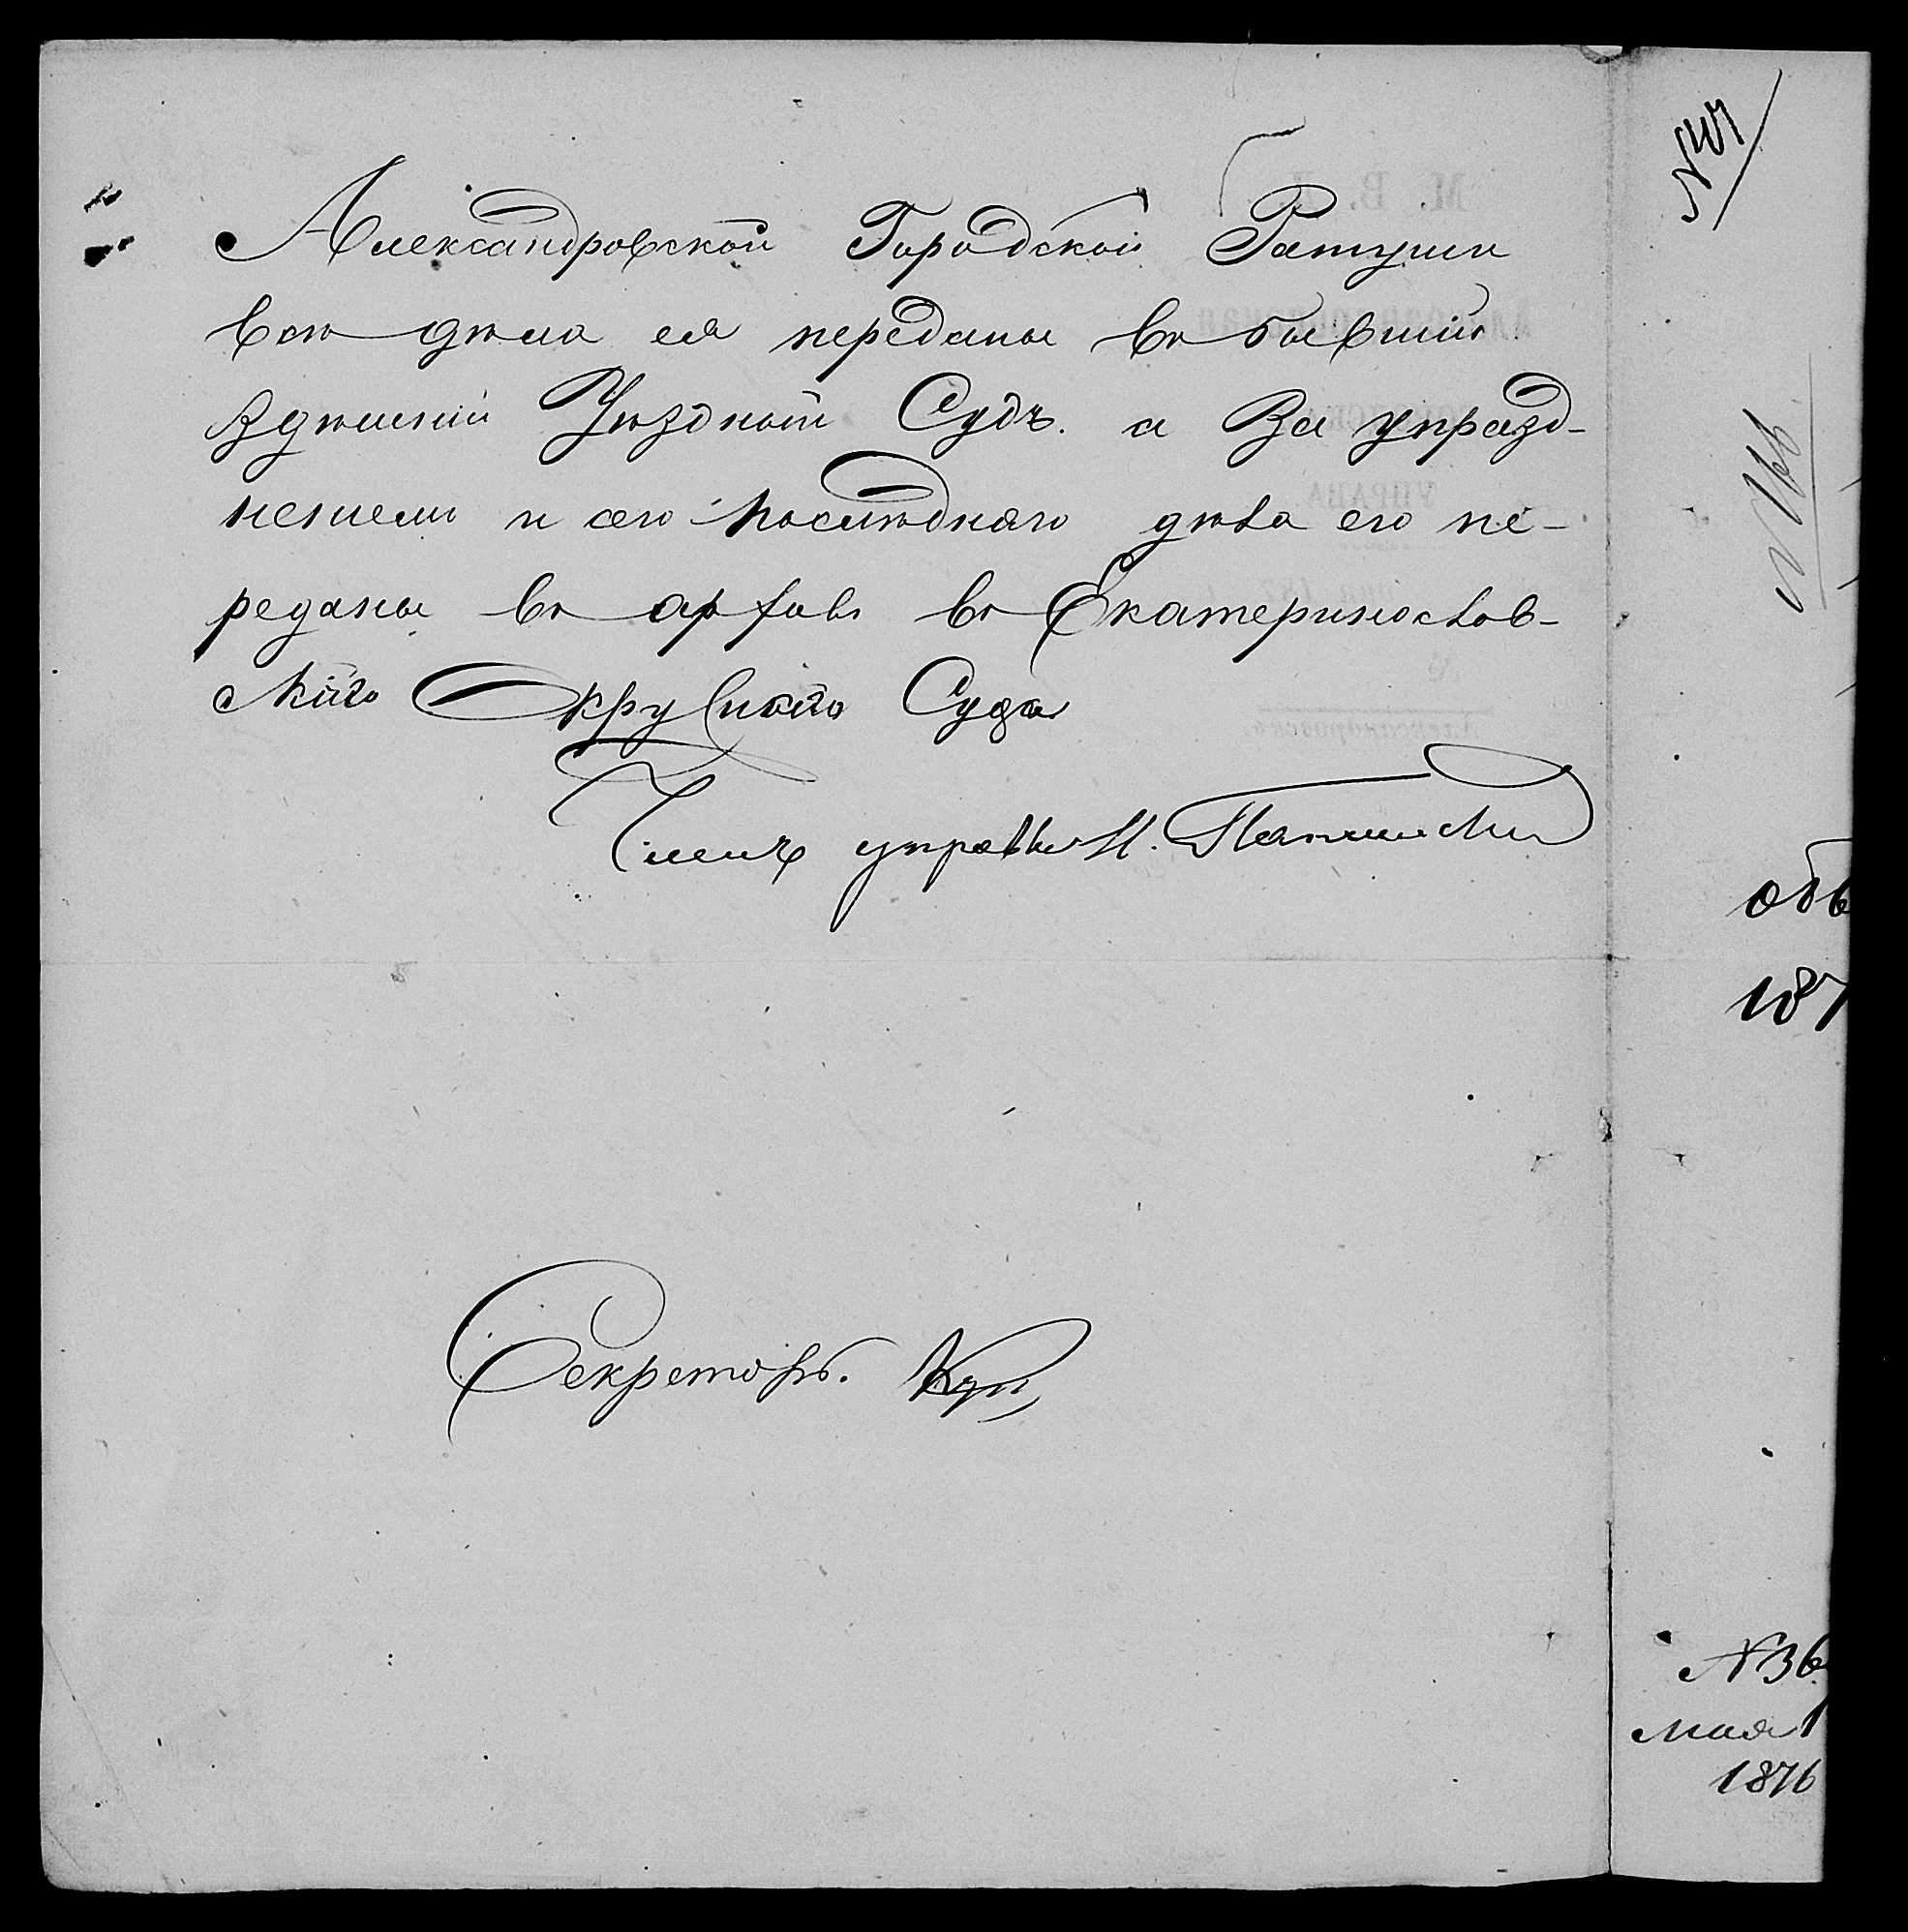 Александровской Городской Ратуши
всѣ дѣла ея переданы въ бывшій
здѣшній Уѣздный Судъ. а За упразд-
неніемъ и сего послѣдняго дѣла его пе-
реданы въ архивъ въ Екатеринослав-
скаго Окружнаго Суда
Членъ управы Н.
Секретарь.
объ
187
N 36
мая 1
1876